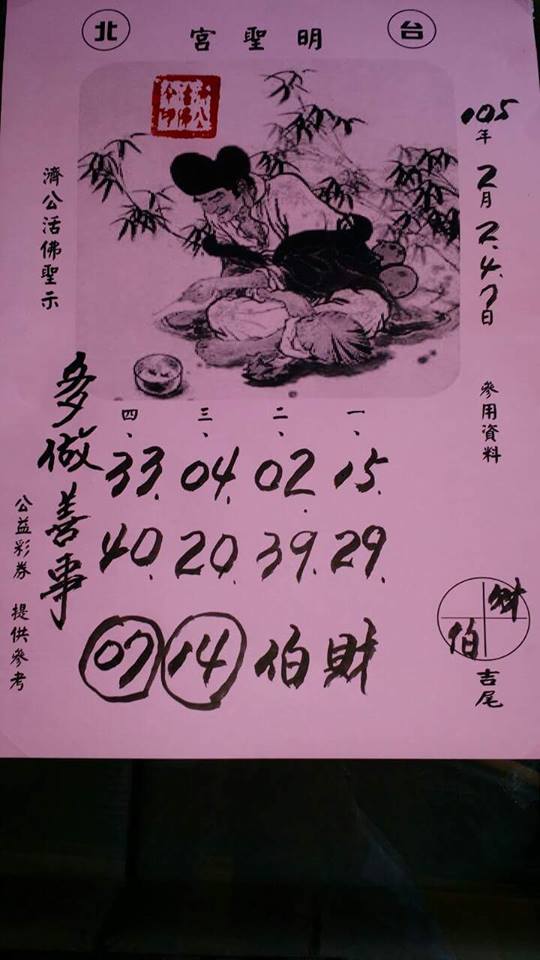 台北
明聖宮
105年2月2.4.7日
參用資料
財
伯
吉尾
一、 二、 三、 四、
15. 02. 04. 33.
29. 39. 20. 40.
財伯 14 07
多做善事
濟公活佛聖示
公益彩券 提供參考